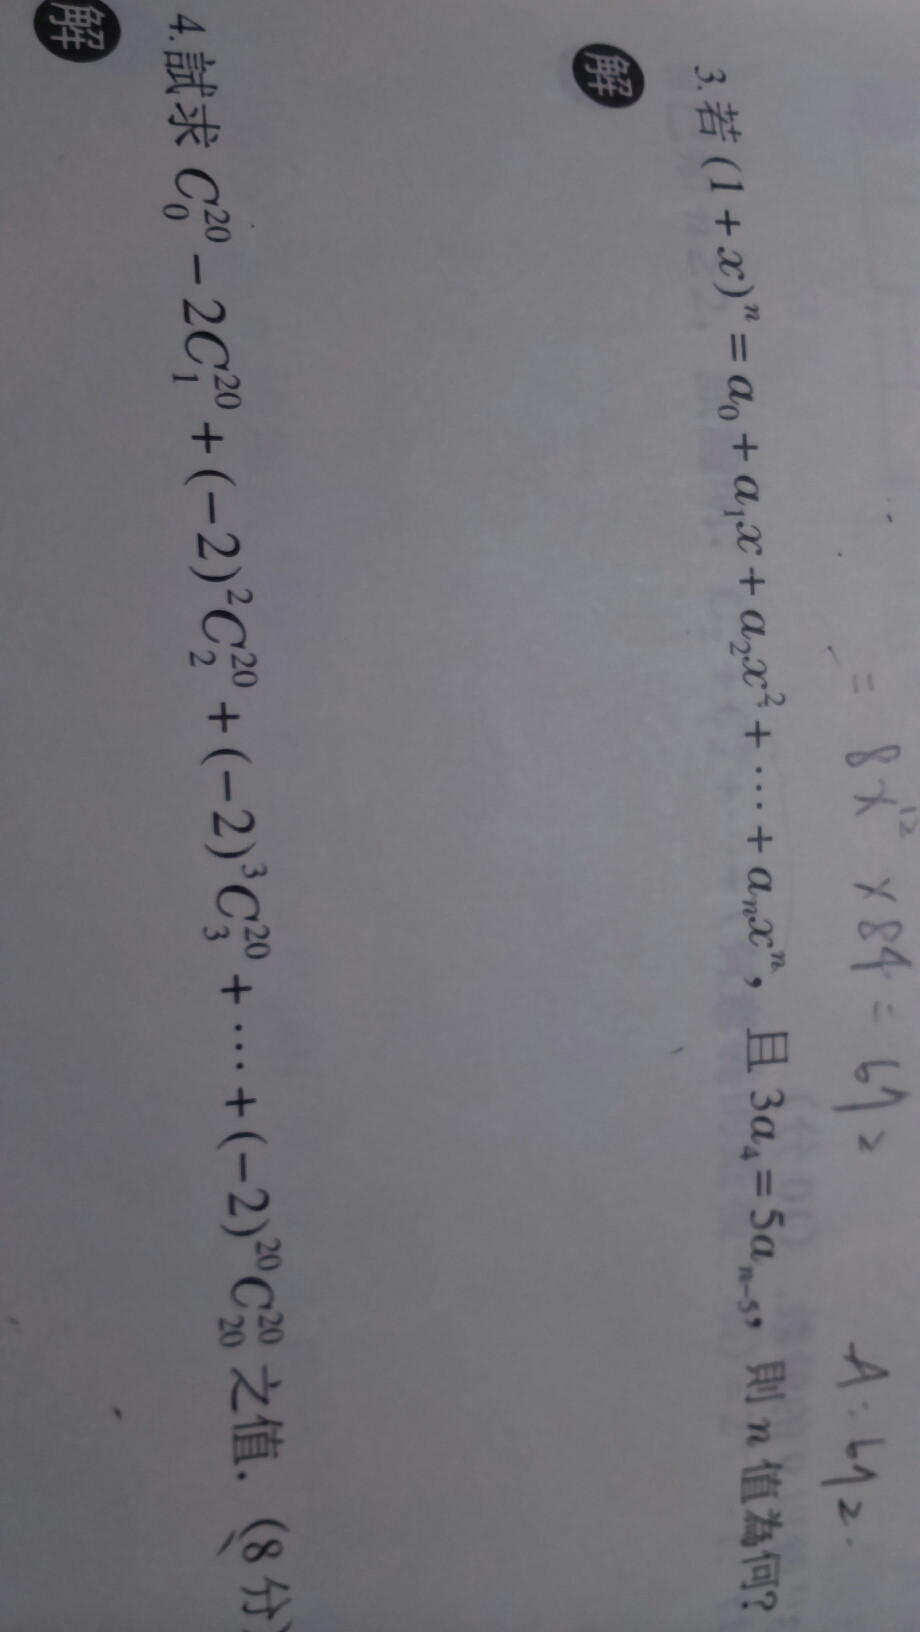 = 8x¹² × 84 = 672 A: 672.
3. 若 (1 + x)ⁿ = a₀ + a₁x + a₂x² + ⋯ + aₙxⁿ, 且 3a₄ = 5aₙ₋₅, 則 n 值為何?
解
4. 試求 C₀²⁰ − 2C₁²⁰ + (−2)²C₂²⁰ + (−2)³C₃²⁰ + ⋯ + (−2)²⁰C₂₀²⁰ 之值. (8 分)
解